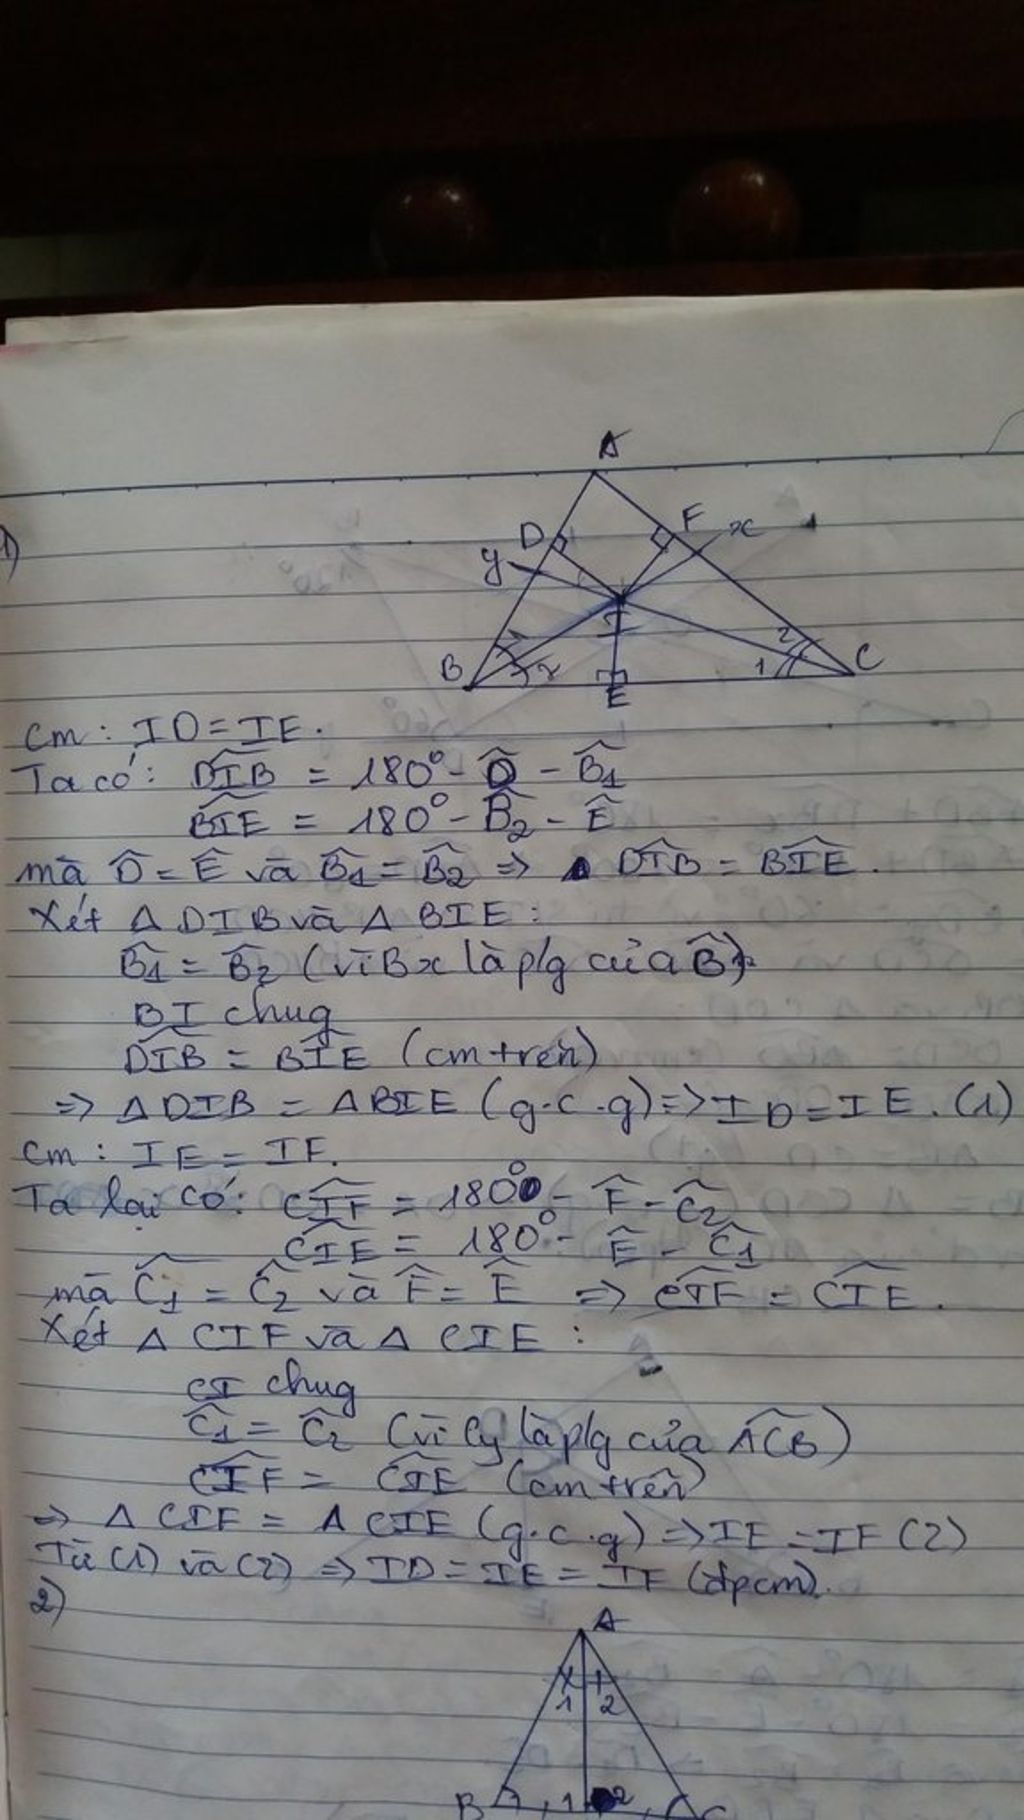 1)
A
D F x
y
I
B 2 1 2 C
E
Cm : ID = IE.
Ta có: DIB = 180° - D̂ - B̂1
BIE = 180° - B̂2 - Ê
mà D̂ = Ê và B̂1 = B̂2 => DIB = BIE.
Xét Δ DIB và Δ BIE :
B̂1 = B̂2 (vì Bx là p/g của B̂)
BI chug
DIB = BIE (cm trên)
=> Δ DIB = Δ BIE (g.c.g) => ID = IE. (1)
Cm : IE = IF.
Ta lại có: CIF = 180° - F̂ - Ĉ2
CIE = 180° - Ê - Ĉ1
mà Ĉ1 = Ĉ2 và F̂ = Ê => CIF = CIE.
Xét Δ CIF và Δ CIE :
CI chug
Ĉ1 = Ĉ2 (vì Cy là p/g của ACB)
CIF = CIE (cm trên)
=> Δ CIF = Δ CIE (g.c.g) => IE = IF (2)
Từ (1) và (2) => ID = IE = IF (đpcm).
2)
A
1 2
B 1 2 C